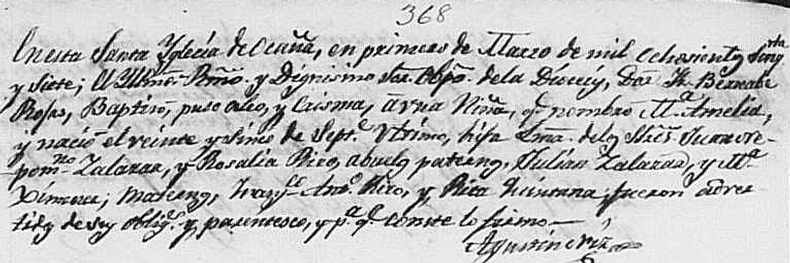 368
En esta Santa Yglecia de Ocaña, en primero de Marzo de mil ochosientos sinq.ta
y siete; el Yllmo. Rmō. y Dignisimo Sor. Obpō. de la Dioces, Dor. Bernabe
Rojas, Baptisó, puso oleo, y Crisma, á vna Niña, q.e nombró M.a Amelia,
y nació el veinte de Sept.e Vltimo, hija Lma. de los Shēs. Juan Ne-
pom.no Zalazar, y Rosalia Riso, abuelos paternos, Julian Zalazar, y M.a
Ximenes; maternos, Ant.o Riso, y Rita Quintana; fueron adver-
tidos de sus oblig.s y parentesco, y p.a q.e conste lo firmo—
Agustin